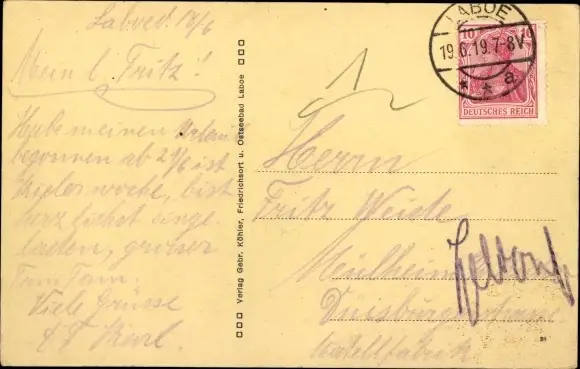 Laboe d. 18/6
Mein l. Fritz!
Habe meinen Urlaub
begonnen ab 21/6 ist
Kielerwoche, bist
herzlichst einge-
laden, grosser
Tam Tam.
Viele Grüsse
Verlag Gebr. Köhler, Friedrichsort u. Ostseebad Laboe
1
LABOE
19.6.19.7-8V
* * a
10 10
DEUTSCHES REICH
Herrn
Fritz Weide
Mülheim
Duisburger